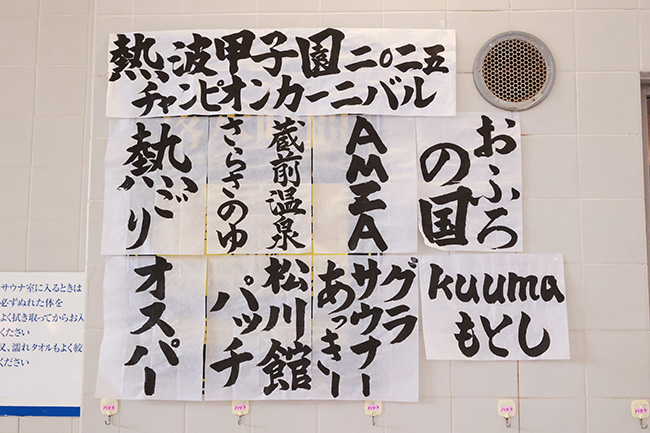 熱波甲子園二〇二五
チャンピオンカーニバル
おふろ
の国
AMIA
蔵前温泉
さらさのゆ
熱ごり
kuuma
もとし
グラ
サウナー
あっきい
松川館
パッチ
オスパー
サウナ室に入るときは
必ずぬれた体を
よく拭き取ってからお入
ください
又、濡れタオルもよく絞
ください